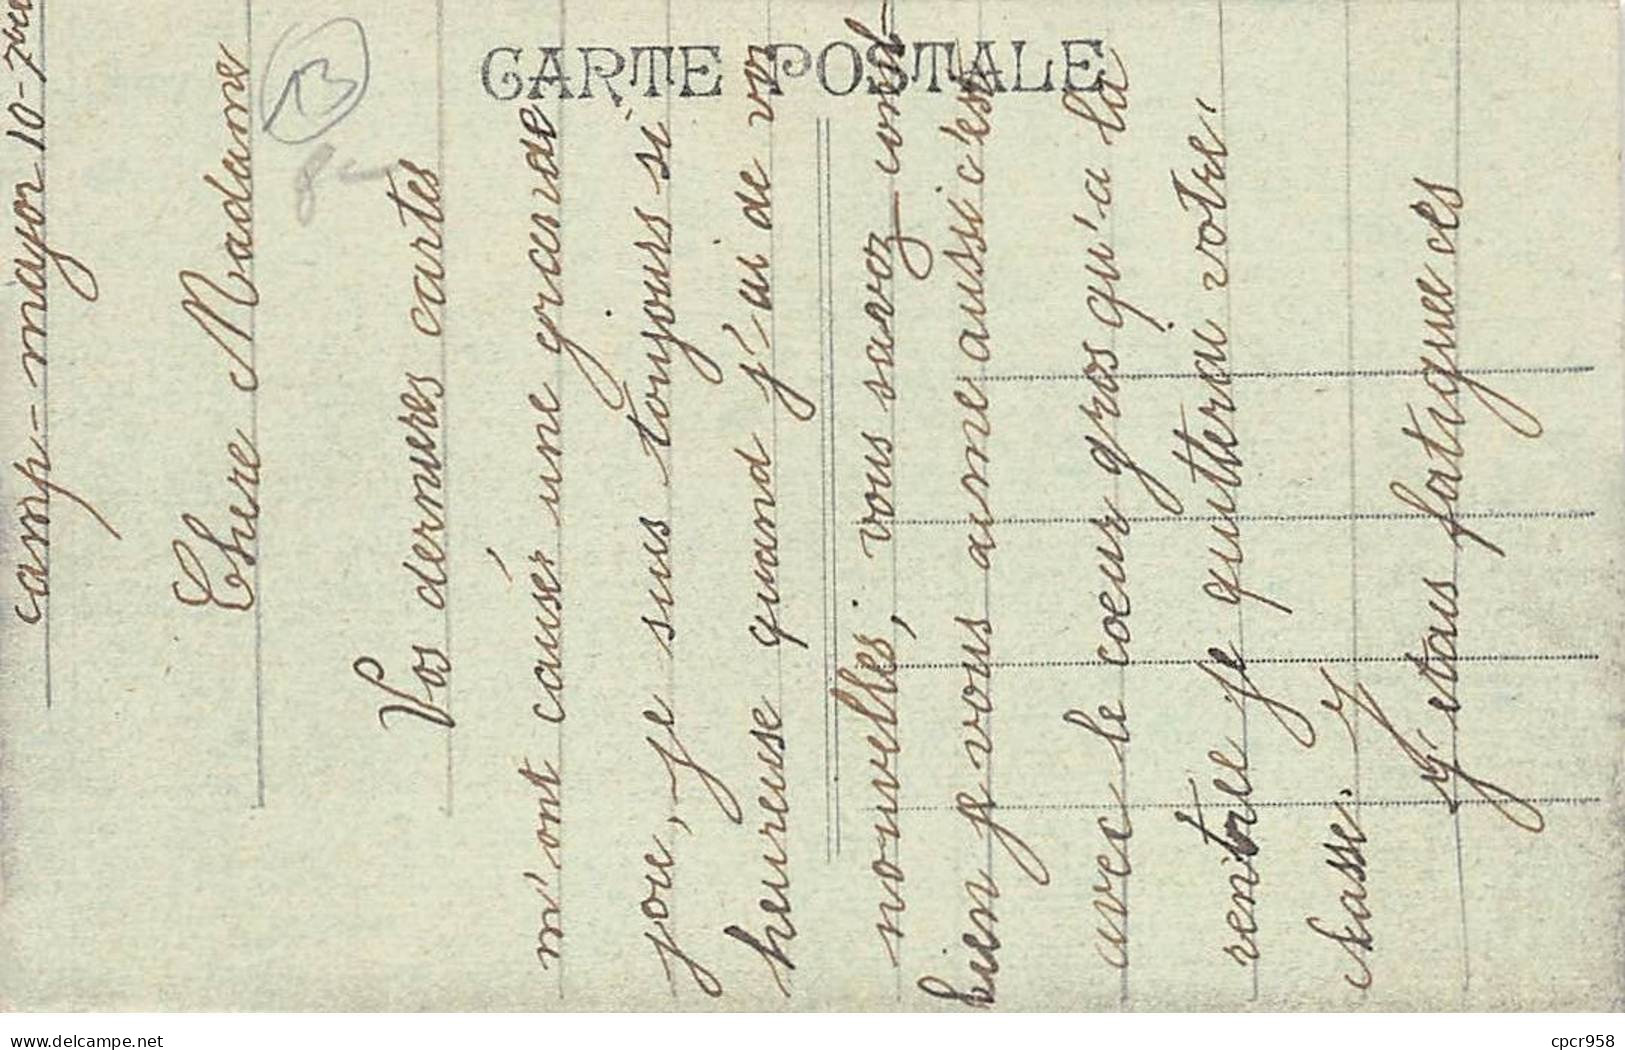 CARTE POSTALE
camp-major 10-7bre
Chere Madame
Vos dernieres cartes
m'ont causér une grande
joie, je suis toujours si
heureuse quand j'ai de vos
nouvelles, vous savez com-
bien je vous aime aussi c'est
avec le coeur gros qu'a la
rentree je quitterai votre
classe.
J'etais fatiguee ces
13
cpcr958
www.delcampe.net